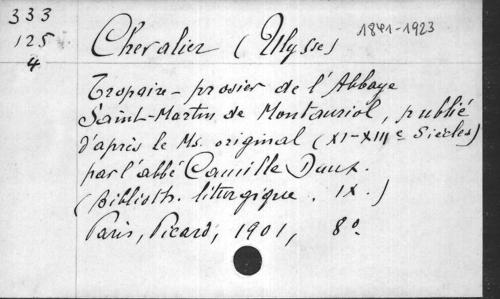 333
125
4
Chevalier (Ulysse) 1841-1923
Tropaire-prosier de l'Abbaye
Saint-Martin de Montauriol, publié
d'après le Ms. original (XI-XIIIe Siècles)
par l'abbé Camille Daux.
(Biblioth. liturgique. IX.)
Paris, Picard, 1901, 8o.